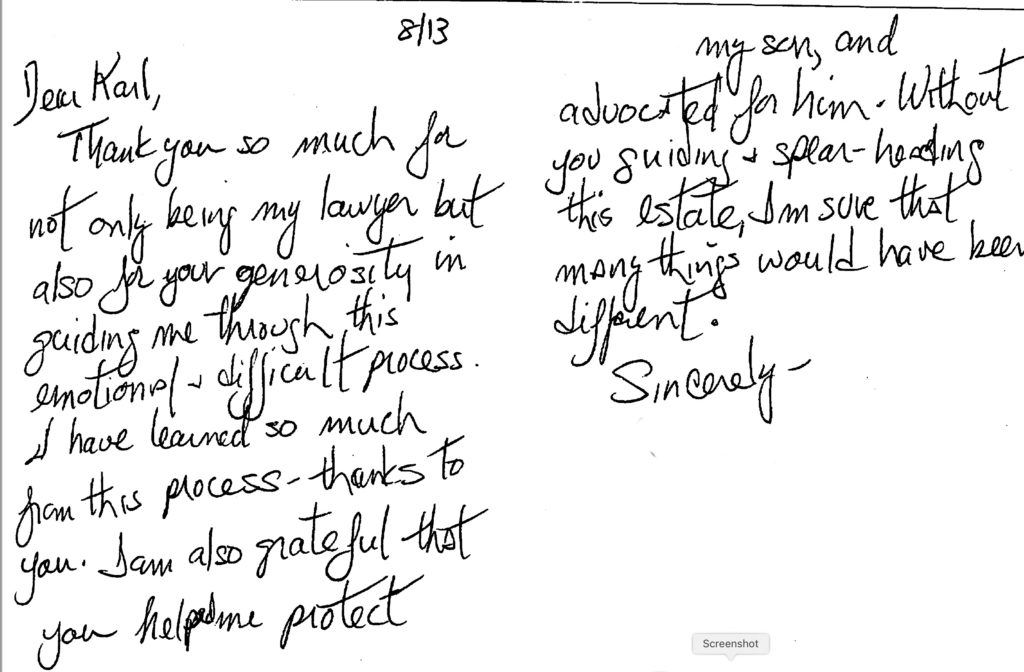 8/13
Dear Karl,
Thank you so much for
not only being my lawyer but
also for your generosity in
guiding me through this
emotional + difficult process.
I have learned so much
from this process - thanks to
you. I am also grateful that
you helped me protect
my son, and
advocated for him. Without
you guiding + spear-heading
this estate, I'm sure that
many things would have been
different.
Sincerely -
Screenshot